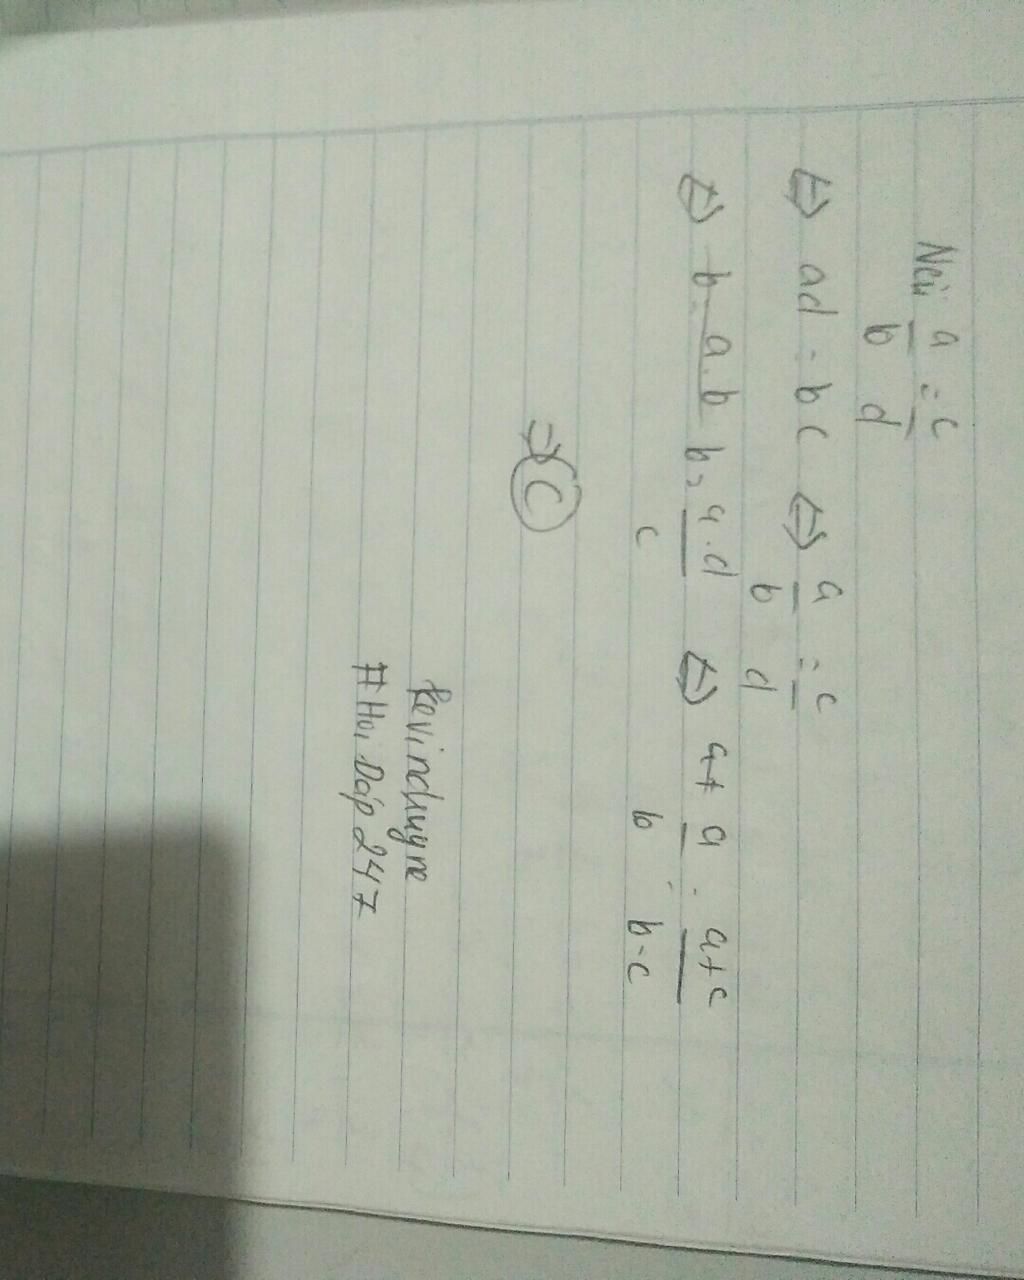 Nếu a/b = c/d
⇔ ad = bc ⇔ a/b = c/d
⇔ b = a.b b = a.d/c ⇔ a + a/b = a+c/b-c
=> C
kevinduyne
#Hoi Dáp 247